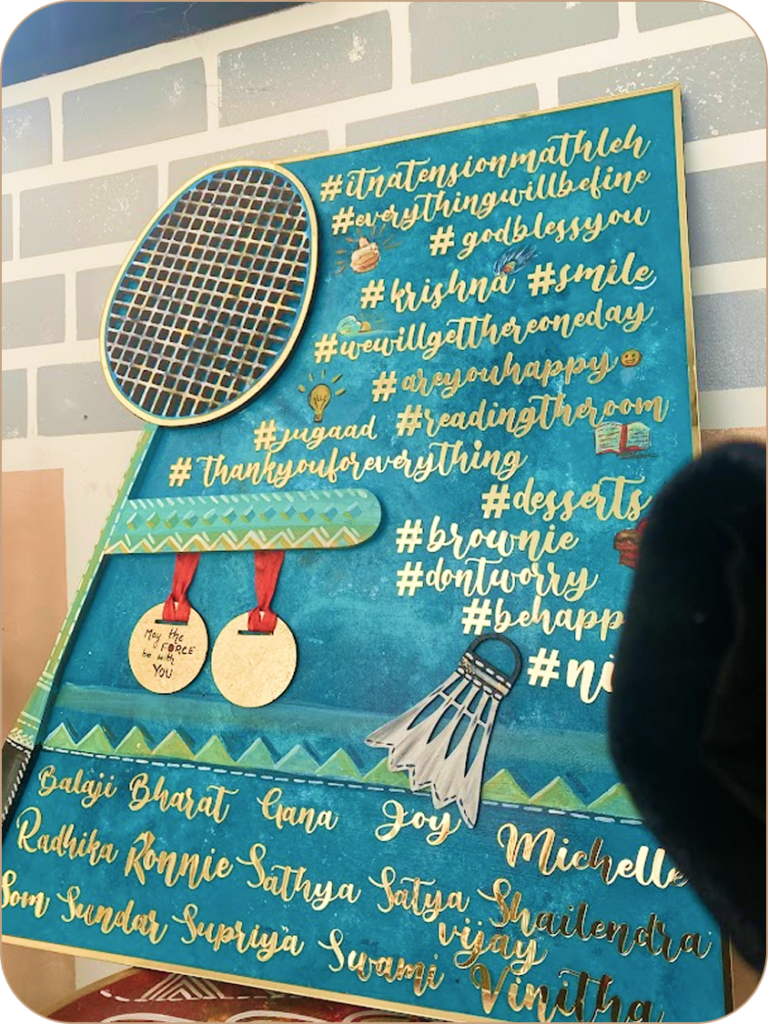 #itnatensionmathleh
#everythingwillbefine
#godblessyou
#krishna #smile
#wewillgetthereoneday
#areyouhappy
#jugaad #readingtheroom
#thankyouforeverything
#desserts
#brownie
#dontworry
#behapp
#ni
May the
FORCE
be with
YOU
Balaji Bharat Gana Joy Michelle
Radhika Ronnie Sathya Satya Shailendra
Som Sundar Supriya Swami vijay Vinitha